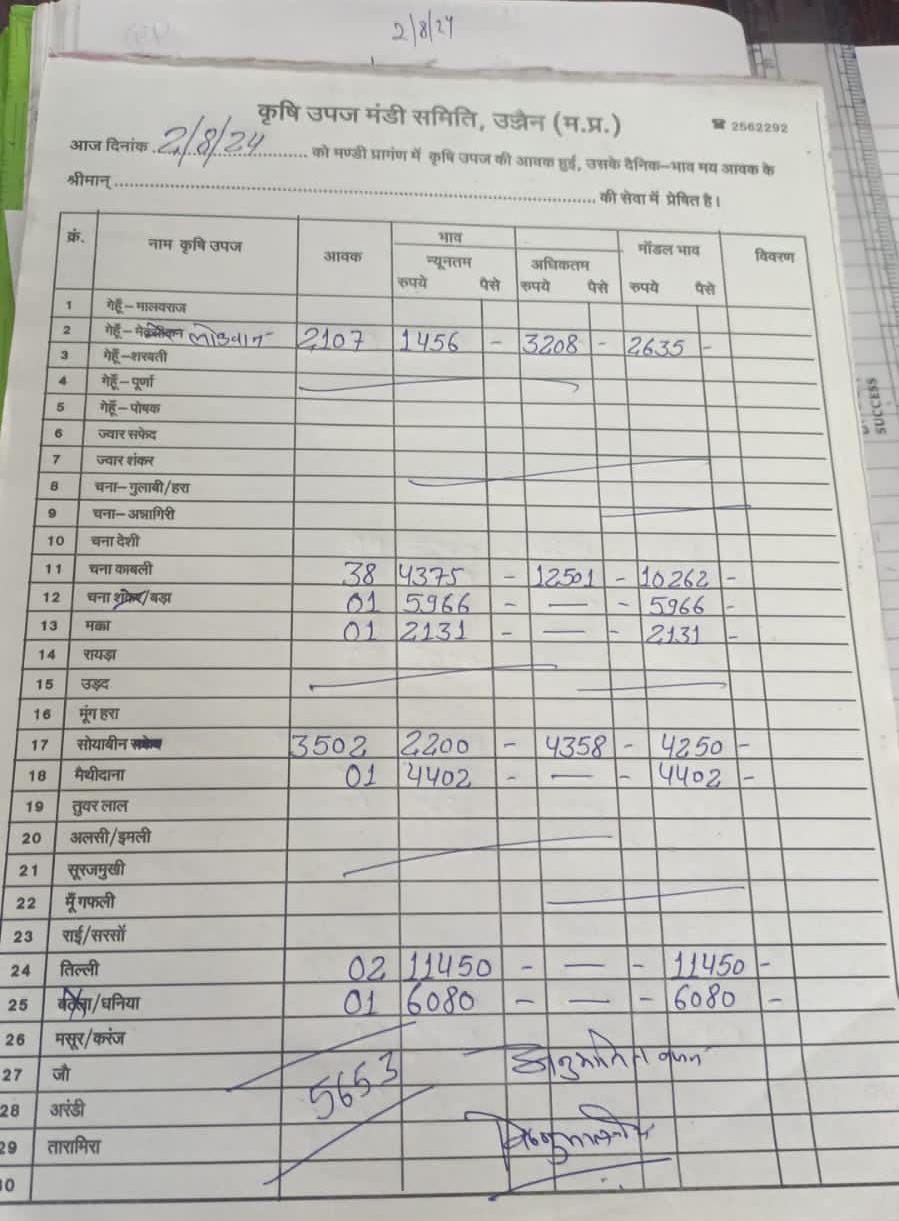 2/8/24
कृषि उपज मंडी समिति, उज्जैन (म.प्र.) ☎ 2562292
आज दिनांक 2/8/24 को मण्डी प्रागंण में कृषि उपज की आवक हुई, उसके दैनिक-भाव मय आवक के
श्रीमान् की सेवा में प्रेषित है।
क्रं. नाम कृषि उपज आवक भाव मॉडल भाव विवरण
न्यूनतम अधिकतम
रुपये पैसे रुपये पैसे रुपये पैसे
1 गेहूँ-मालवराज
2 गेहूँ- लोकवान 2107 1456 - 3208 - 2635 -
3 गेहूँ-शरबती
4 गेहूँ-पूर्णा
5 गेहूँ-पोषक
6 ज्वार सफेद
7 ज्वार शंकर
8 चना-गुलाबी/हरा
9 चना-अन्नागिरी
10 चना देशी
11 चना काबली 38 4375 - 12501 - 10262 -
12 चना /बड़ा 01 5966 - — - 5966 -
13 मक्का 01 2131 - — - 2131 -
14 रायड़ा
15 उड़द
16 मूंग हरा
17 सोयाबीन 3502 2200 - 4358 - 4250 -
18 मैथीदाना 01 4402 - — - 4402 -
19 तुवर लाल
20 अलसी/इमली
21 सूरजमुखी
22 मूँगफली
23 राई/सरसों
24 तिल्ली 02 11450 - — - 11450 -
25 /धनिया 01 6080 - — - 6080 -
26 मसूर/करंज
27 जौ
5653
28 अरंडी
29 तारामिरा
SUCCESS